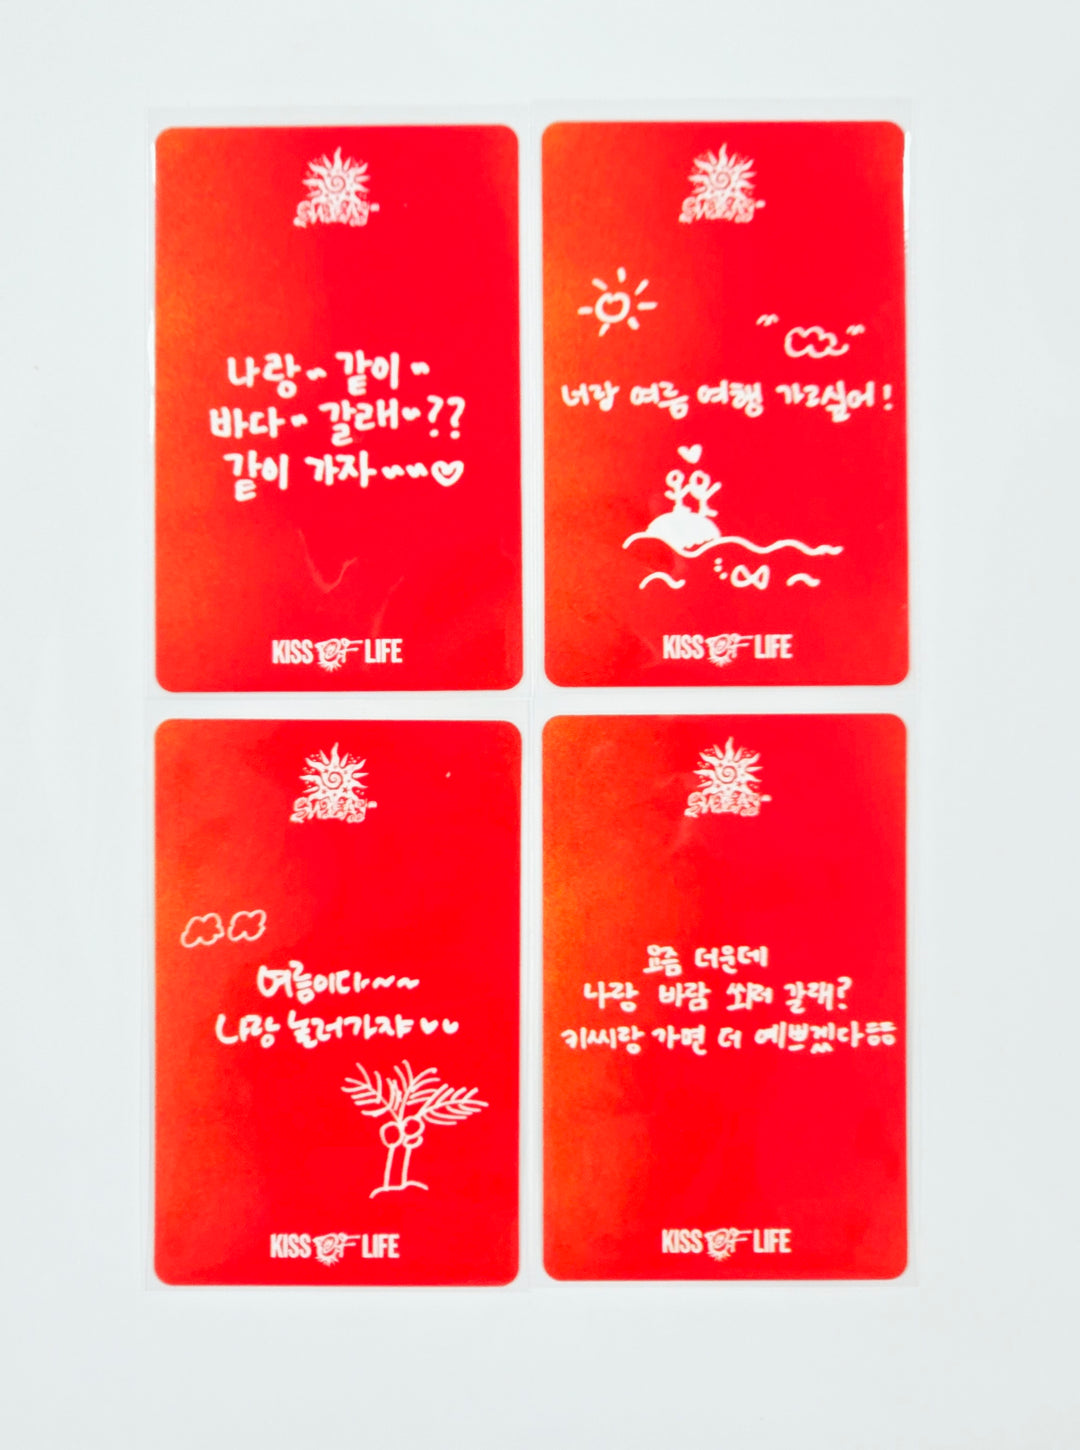 나랑~ 같이~
바다~ 갈래~??
같이 가자~~~♡
KISS OF LIFE
너랑 여름 여행 가고싶어!
KISS OF LIFE
여름이다~~~
나랑 놀러가쟈♥♥♥
KISS OF LIFE
요즘 더운데
나랑 바람 쐬러 갈래?
키씨랑 가면 더 예쁘겠다ㅎㅎ
KISS OF LIFE